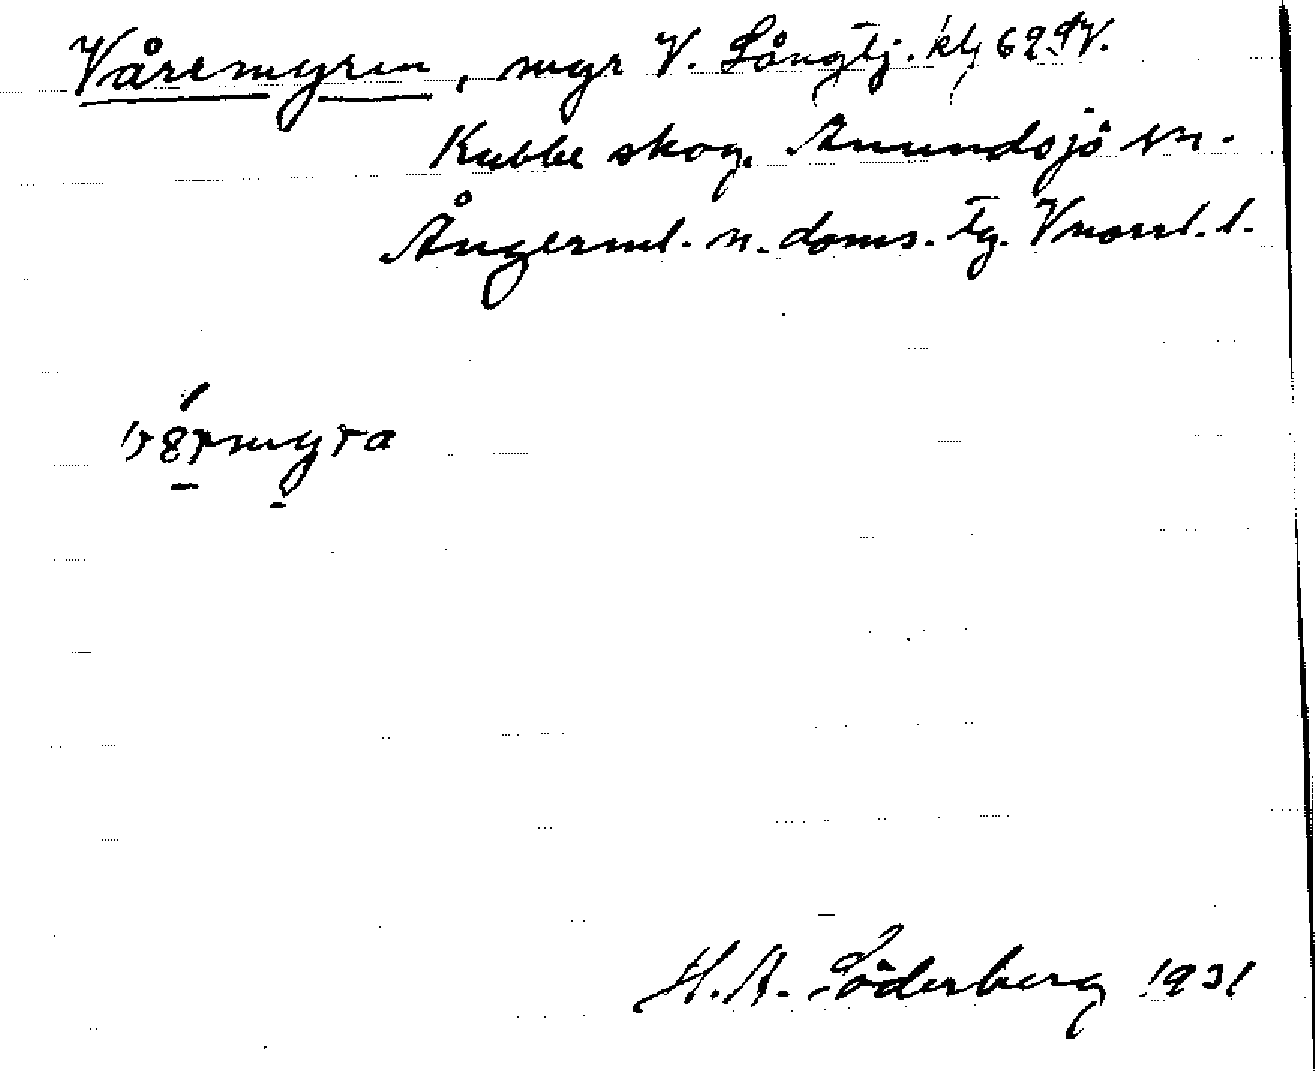 Våremyren, myr V. Långtj. kbl 62 SV.
Kubbe skog, Anundsjö sn.
Ångerml. n. doms. tg. Vnorrl. l.
H. A. Söderberg 1931